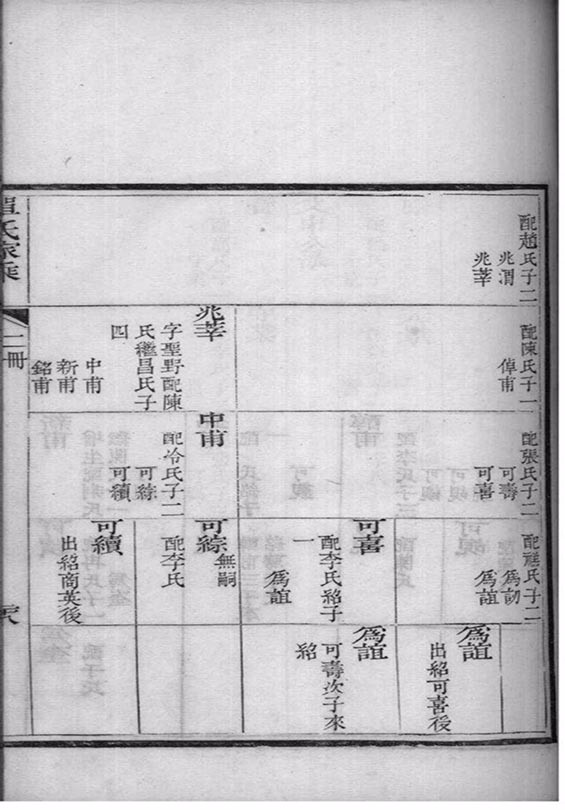 配趙氏子二
兆渭
兆莘
配陳氏子一
倬甫
兆莘
字聖野配陳
氏繼昌氏子
四
中甫
新甫
銘甫
配張氏子二
可壽
可喜
中甫
配冷氏子二
可綜
可續
配氏子二
爲訒
爲誼
可喜
配李氏紹子
一
爲誼
可綜
無嗣
配李氏
可續
出紹商英後
爲誼
出紹可喜後
爲誼
可壽次子來
紹
氏家乘
二冊